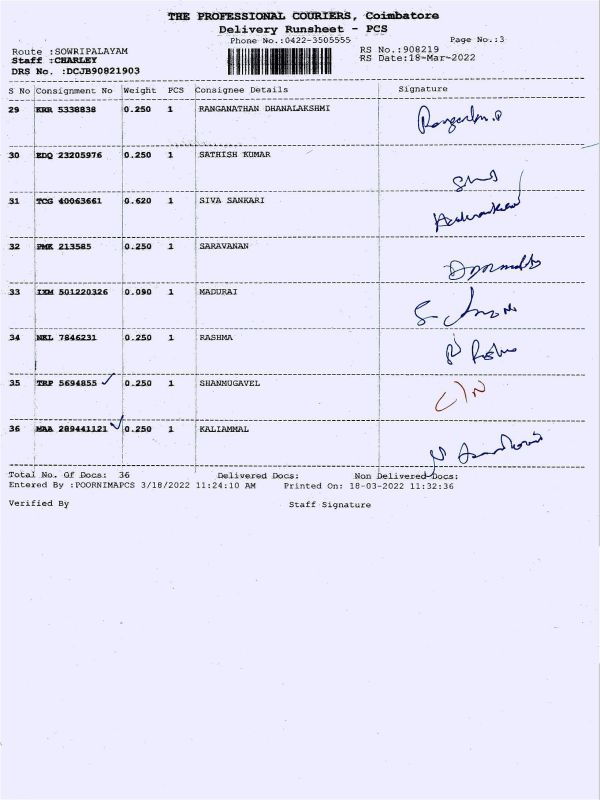 THE PROFESSIONAL COURIERS, Coimbatore
Delivery Runsheet - PCS
Phone No.:0422-3505555 Page No.:3
Route :SOWRIPALAYAM RS No.:908219
Staff :CHARLEY RS Date:18-Mar-2022
DRS No. :DCJB90821903
S No Consignment No Weight PCS Consignee Details Signature
29 KRR 5338838 0.250 1 RANGANATHAN DHANALAKSHMI
30 EDQ 23205976 0.250 1 SATHISH KUMAR
31 TCG 40063661 0.620 1 SIVA SANKARI
32 PMK 213585 0.250 1 SARAVANAN
33 IXM 501220326 0.090 1 MADURAI
34 NKL 7846231 0.250 1 RASHMA
35 TRP 5694855 0.250 1 SHANMUGAVEL
36 MAA 289441121 0.250 1 KALIAMMAL
Total No. Of Docs: 36 Delivered Docs: Non Delivered Docs:
Entered By :POORNIMAPCS 3/18/2022 11:24:10 AM Printed On: 18-03-2022 11:32:36
Verified By Staff Signature